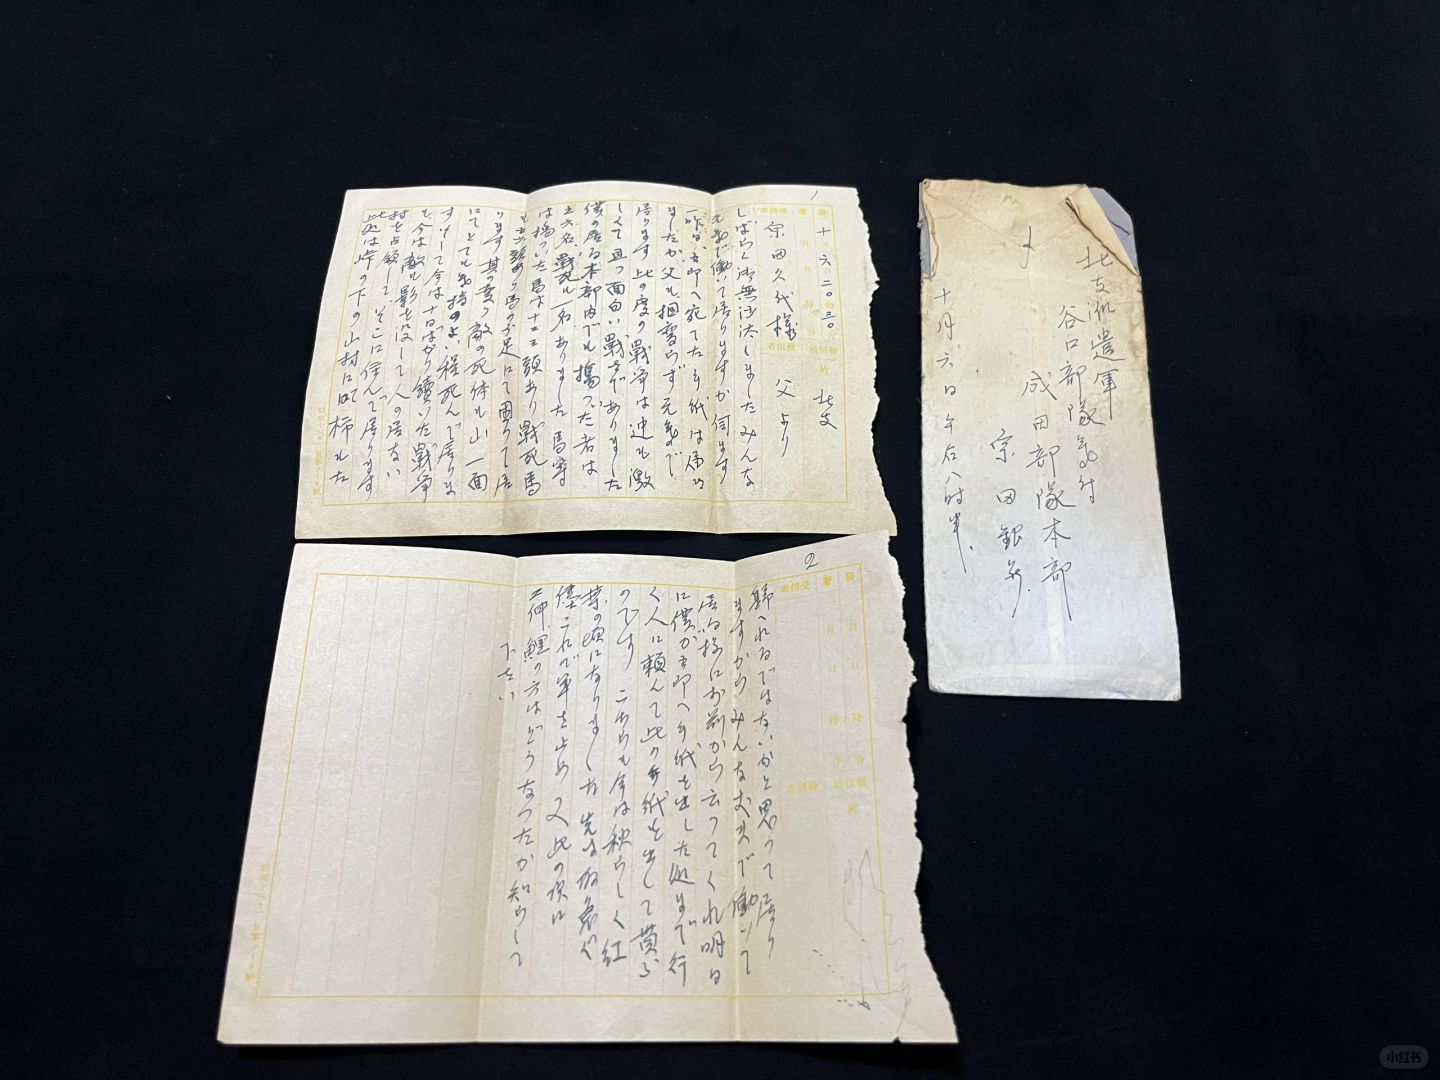 1
十月六日二〇時三〇分
於 北支
宗田久代様 父より
しばらく御無沙汰しましたみんな
元気で働いて居りますか伺ます
一昨日 五郎へ宛てた手紙は届き
ましたか父も相変らず元気で
居ります 此の度の戦争は迚も激
しくて且つ面白い戦争でありました
僕の居る本部内でも傷ついた者は
五六名戦死も一名ありました 馬等
は傷ついた馬は十二三頭あり戦死馬
も五六頭あり馬の不足にて困って居
ります 其の変り敵の死体も山一面
にてとても気持のよい程死んで居りま
す そして今は十日ばかり続いた戦争
も、今は敵も影を没して人の居ない
村を占領して、そこに住んで居ります
此処は峠の下の山村にて 柿も
2
帰へれるではないかと思って居り
ますからみんな丈夫で働いて
居る様にお前から云ってくれ明日
に僕が五郎へ手紙を出した処まで行
く人に頼んで此の手紙を出して貰ふ
のです こちらも今は秋らしく紅
葉の頃になりました 先は
これで筆を止め 又此の次に
鯉の方はどうなったか知らして
下さい
北支派遣軍
谷口部隊気付
成田部隊本部
宗田銀
十月六日午后八時半
小红书